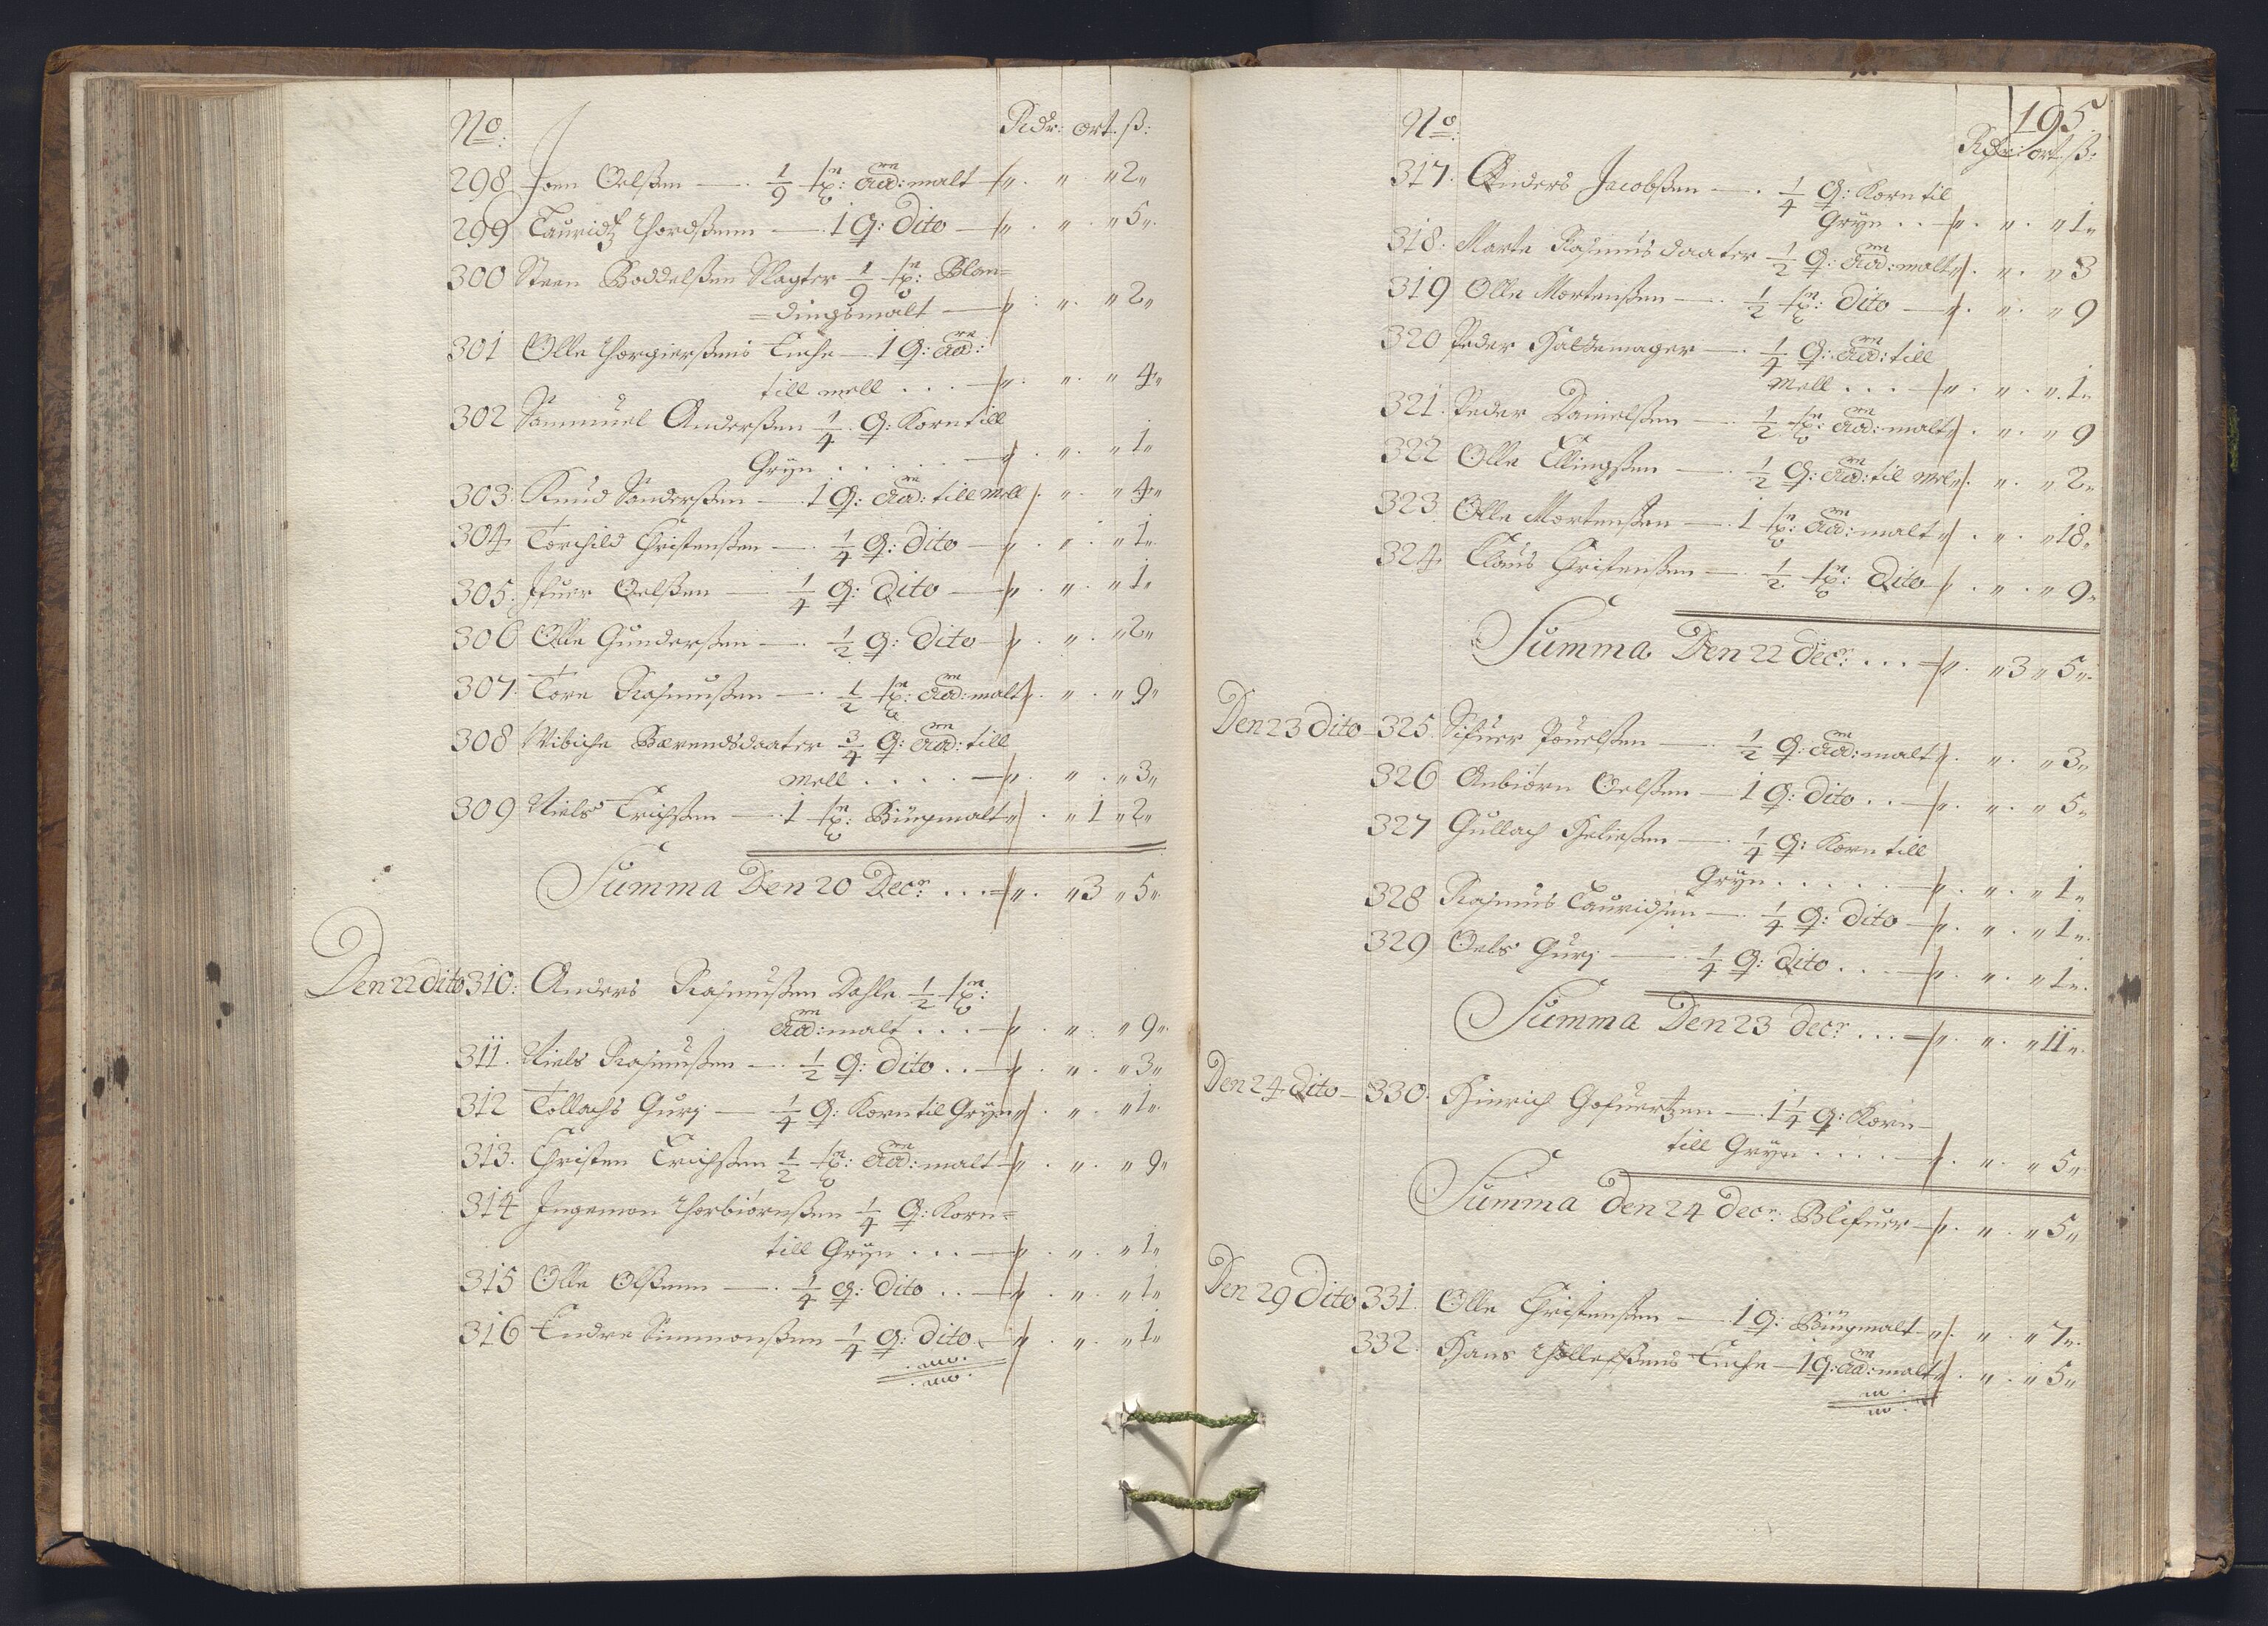 No: Rdr: ort. ß:
298 Joen Oelßen — 1/9 tn: Ad: malt „ „ „ 2 „
299 Lauridtz Thordßenn — 1 Q: Dito — „ „ „ 5 „
300 Steen Boddelßen Slagter 1/9 tn: Blan=
=dingsmalt — „ „ „ 2 „
301 Olle Thorgierßens Enche — 1 Q: Ad:
till mell . . . — „ „ „ 4 „
302 Sammuel Anderßen 1/4 Q: Korn till
Gryn . . . . . — „ „ „ 1 „
303: Knud Sanderßen — 1 Q: Ad: till mell „ „ „ 4 „
304 Torchild Christenßen — 1/4 Q: Dito — „ „ „ 1 „
305. Ifuer Oelßen — 1/4 Q: Dito — „ „ „ 1 „
306 Olle Gunderßen — 1/2 Q: Dito — „ „ „ 2 „
307. Tore Rasmußen — 1/2 tn: Ad: malt „ „ „ 9 „
308 Wibiche Bærendsdaater 3/4 Q: Ad: till
mell . . . . — „ „ „ 3 „
309 Niels Erichßen — 1 tn: Bÿgmalt „ „ 1 „ 2 „
Summa Den 20 Decr: . . . „ „ 3 „ 5 „
Den 22 dito 310: Anders Rasmußen Dahle 1/2 tn:
Ad: malt . . . — „ „ „ 9 „
311. Niels Rasmußen — 1/2 Q: Dito . . — „ „ „ 3 „
312 Tollachs Gurj — 1/4 Q: Korn til Gryn „ „ „ 1 „
313. Christen Erichßen 1/2 tn: Ad: malt — „ „ „ 9 „
314 Ingemon Thorbiørnßen 1/4 Q: Korn=
till Gryn . . . — „ „ „ 1 „
315 Olle Olßenn — 1/4 Q: Dito . . — „ „ „ 1 „
316 Endre Simmonßen 1/4 Q: Dito — „ „ „ 1 „
195.
No: Rdr: ort. ß:
317. Anders Jacobßen — 1/4 Q: Korn til
Gryn . . — „ „ „ 1 „
318: Marte Rasmus daater 1/2 Q: Ad: malt „ „ „ 3
319 Olle Mortenßen — 1/2 tn: Dito — „ „ „ 9
320 Peder Hattemager — 1/4 Q: Ad: till
Mell . . . — „ „ „ 1 „
321. Peder Danielßen — 1/2 tn: Ad: malt „ „ „ 9
322 Olle Ellingßen — 1/2 Q: Ad: til mel „ „ „ 2 „
323 Olle Mortenßen — 1 tn: Ad: malt „ „ „ 18 „
324 Claus Christenßen — 1/2 tn: Dito — „ „ „ 9 „
Summa Den 22 Decr: . . . „ „ 3 „ 5 „
Den 23 Dito 325. Sifuer Pouelßen — 1/2 Q: Ad: malt „ „ „ 3 „
326 Anbiørn Oelßen — 1 Q: Dito . . — „ „ „ 5 „
327 Gullach Heließen — 1/4 Q: Korn till
Gryn . . . . . — „ „ „ 1 „
328 Rasmus Lauridsen — 1/4 Q: Dito — „ „ „ 1 „
329 Oels Gurj — 1/4 Q: Dito . . . — „ „ „ 1 „
Summa Den 23 Decr . . . „ „ „ 11 „
Den 24 Dito — 330. Hinrich Gofuertzen — 1 1/4 Q: Korn
till Gryn . . . . — „ „ „ 5 „
Summa Den 24 Decr: Blifuer „ „ „ 5 „
Den 29 Dito 331. Olle Christenßen — 1 Q: Bÿgmalt „ „ „ 7 „
332. Hans Thollefßens Enche — 1 Q: Ad: malt „ „ „ 5 „